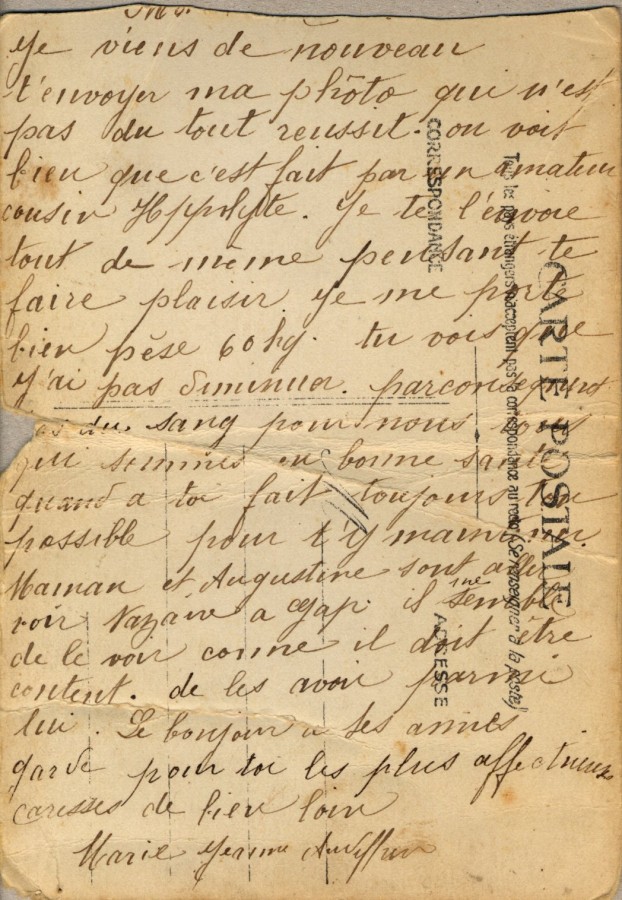 Je viens de nouveau
t'envoyer ma phôto qui n'est
pas du tout reussit. on voit
bien que c'est fait par un amateur
cousin Hyppolyte. Je te l'envoie
tout de même pensant te
faire plaisir. Je me porte
bien pèse 60 kg. tu vois que
j'ai pas diminuer. parconsequent
pas du sang pour nous tous
qui sommes en bonne santé
quand a toi fait toujours ton
possible pour t'y maintenir.
Maman et Augustine sont aller
voir Nazaire a Gap. il me semble
de le voir comme il doit être
content. de les avoir parmi
lui. Le bonjour a tes amies
garde pour toi les plus affectueux
caresses de bien loin
Marie Jeanne
CARTE POSTALE
Tous les pays étrangers n'acceptent pas la correspondance au recto (Se renseigner à la poste)
CORRESPONDANCE
ADRESSE